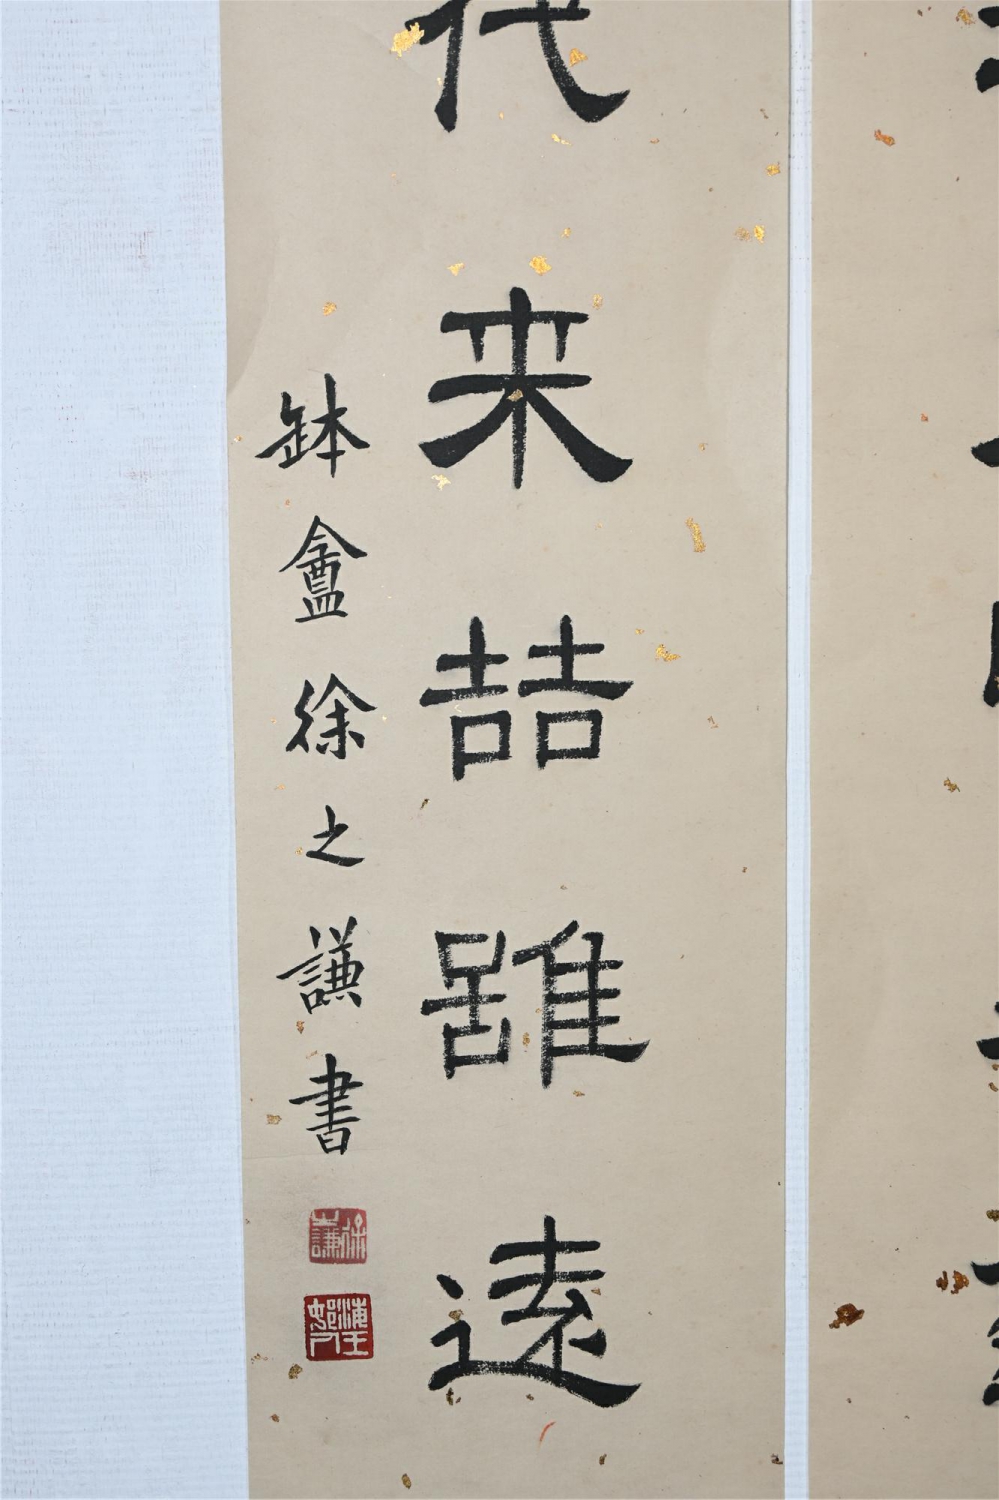 代来喆雖遠
缽盦徐之謙書
徐之謙